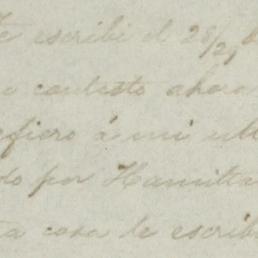 Te escribi el 28/2,
contesto ahora
efiero á mi ul
do por Hamilto
ta cosa le escrib